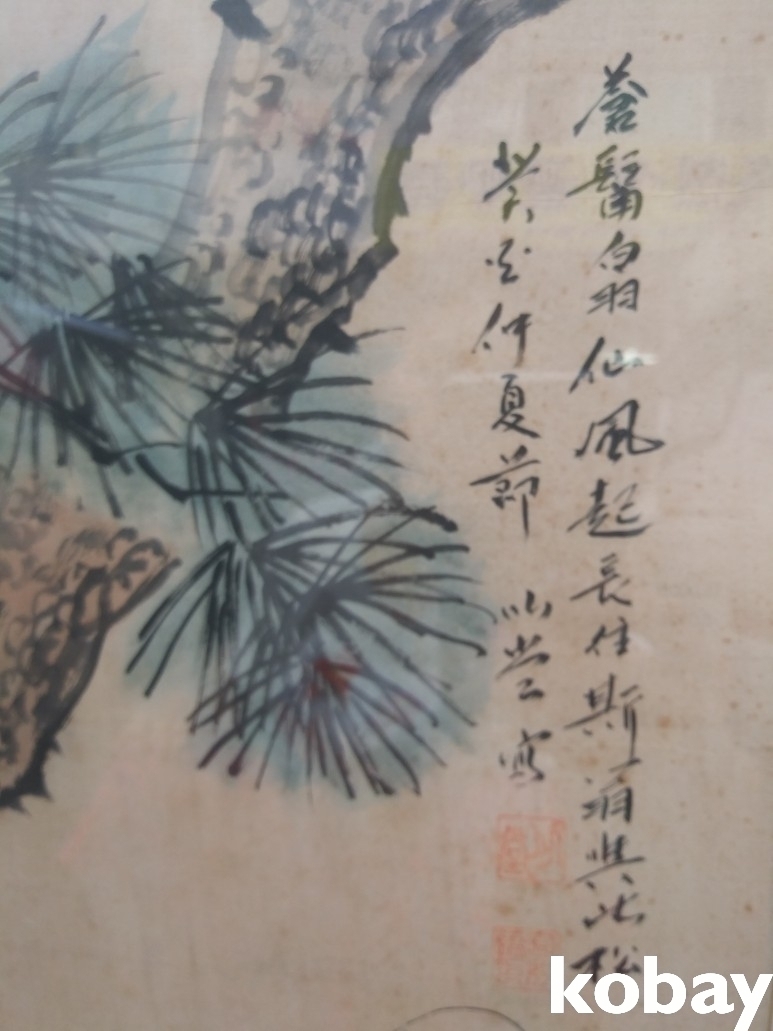 蒼髯白羽仙風起長住斯須與此松
癸亥仲夏節 山堂寫
kobay